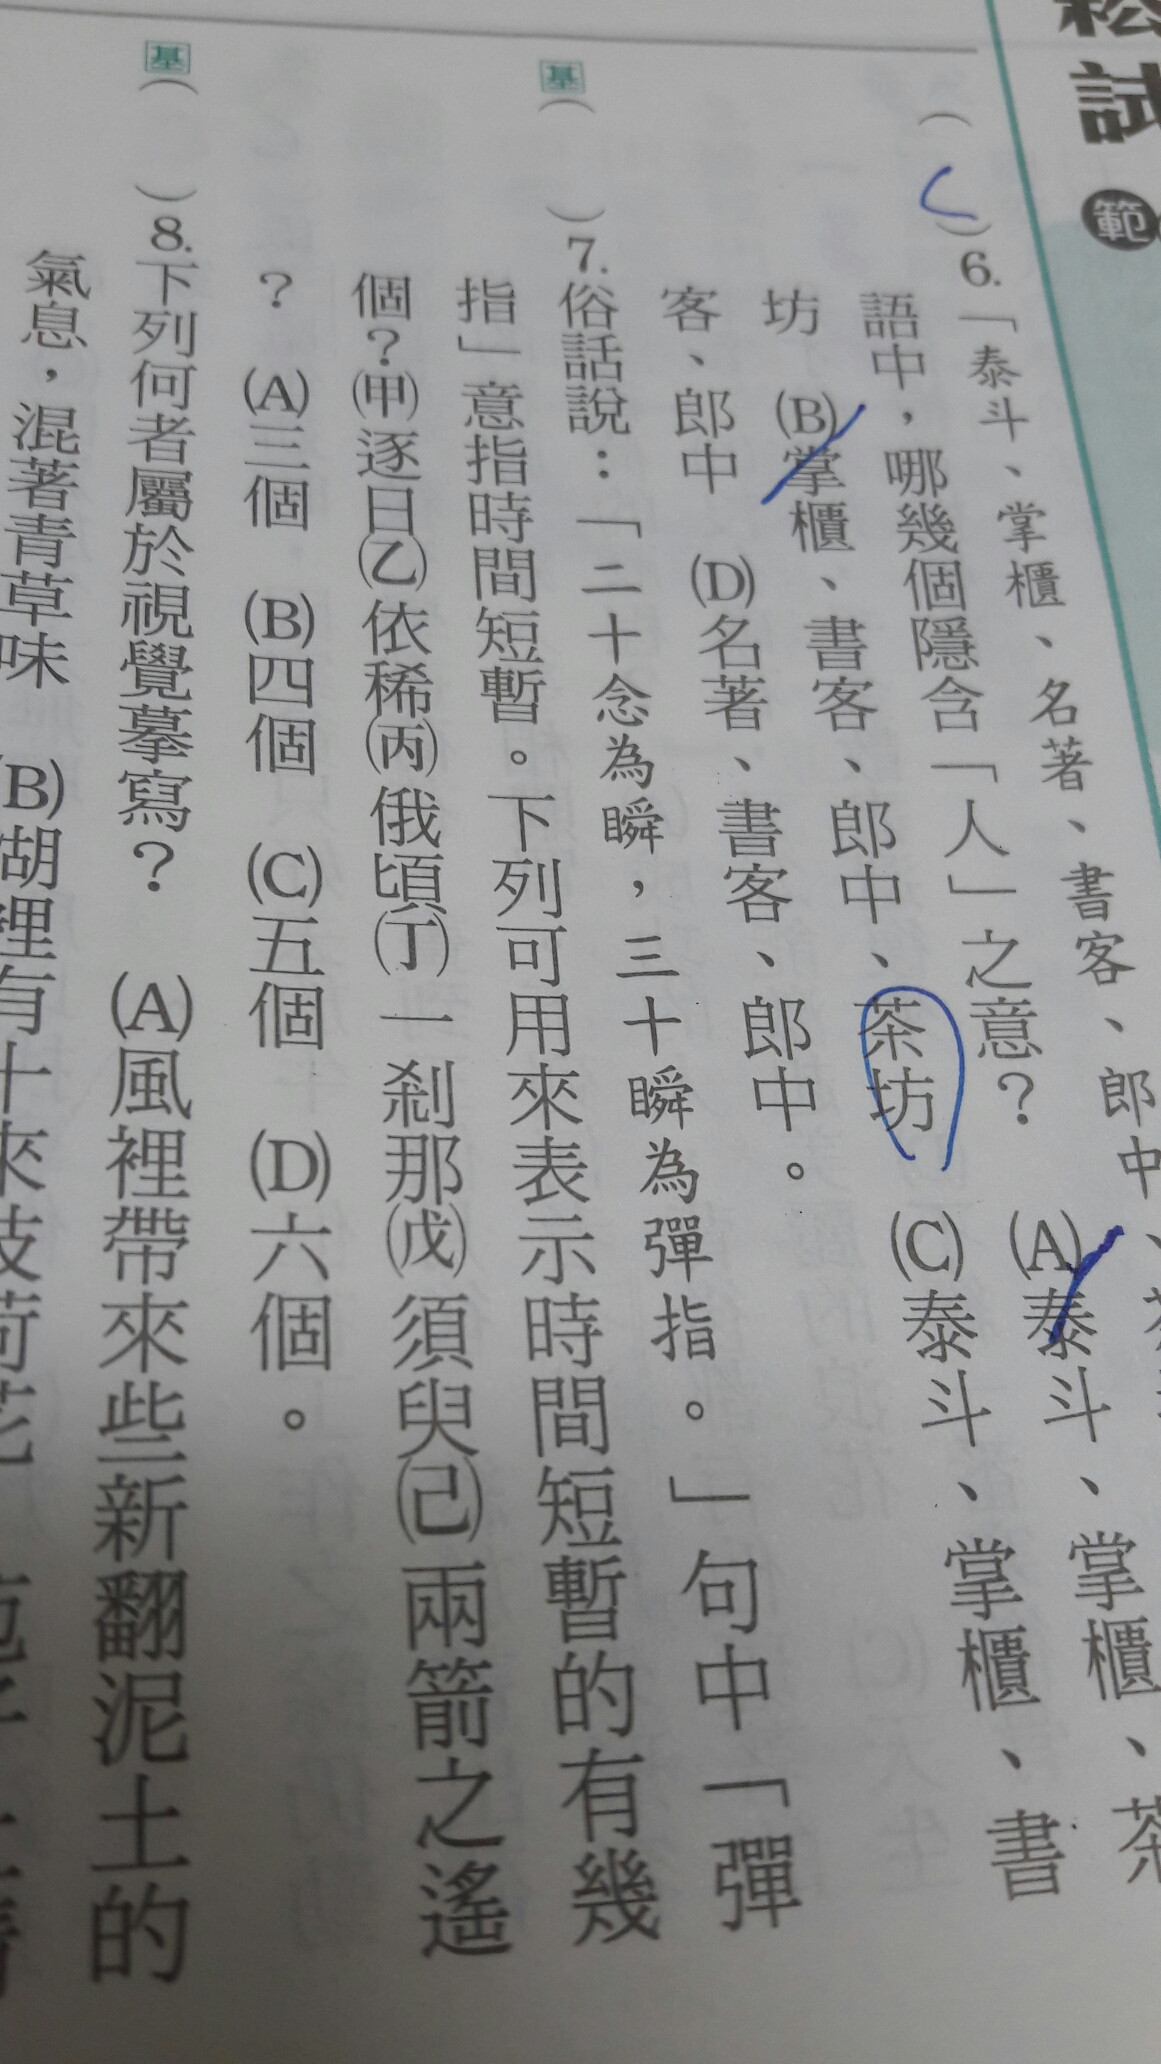 試
範
( C )6.「泰斗、掌櫃、名著、書客、郎中、
語中，哪幾個隱含「人」之意？　(A)泰斗、掌櫃、茶
坊　(B)掌櫃、書客、郎中、茶坊　(C)泰斗、掌櫃、書
客、郎中　(D)名著、書客、郎中。
基(　)7.俗話說：「二十念為瞬，三十瞬為彈指。」句中「彈
指」意指時間短暫。下列可用來表示時間短暫的有幾
個？(甲)逐日(乙)依稀(丙)俄頃(丁)一剎那(戊)須臾(己)兩箭之遙
？　(A)三個　(B)四個　(C)五個　(D)六個。
基(　)8.下列何者屬於視覺摹寫？　(A)風裡帶來些新翻泥土的
氣息，混著青草味　(B)湖裡有十來枝荷花